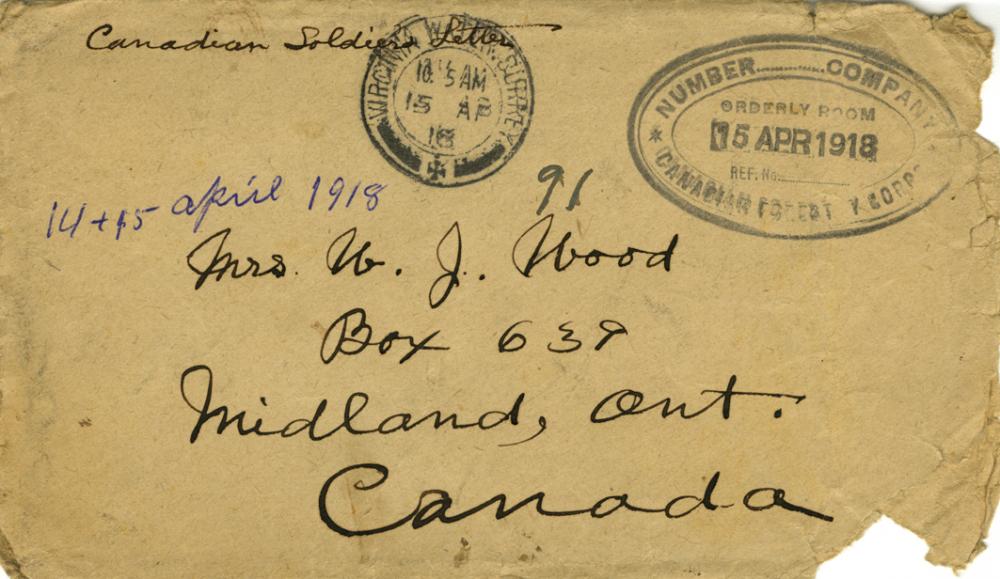 Canadian Soldiers Letter
VIRGINIA WATER. SURREY
10.15 AM
15 AP
18
NUMBER..........COMPANY
ORDERLY ROOM
15 APR 1918
REF. No..........
* CANADIAN FOREST Y CORPS
14 + 15 april 1918
91
Mrs. W. J. Wood
Box 639
Midland, Ont.
Canada